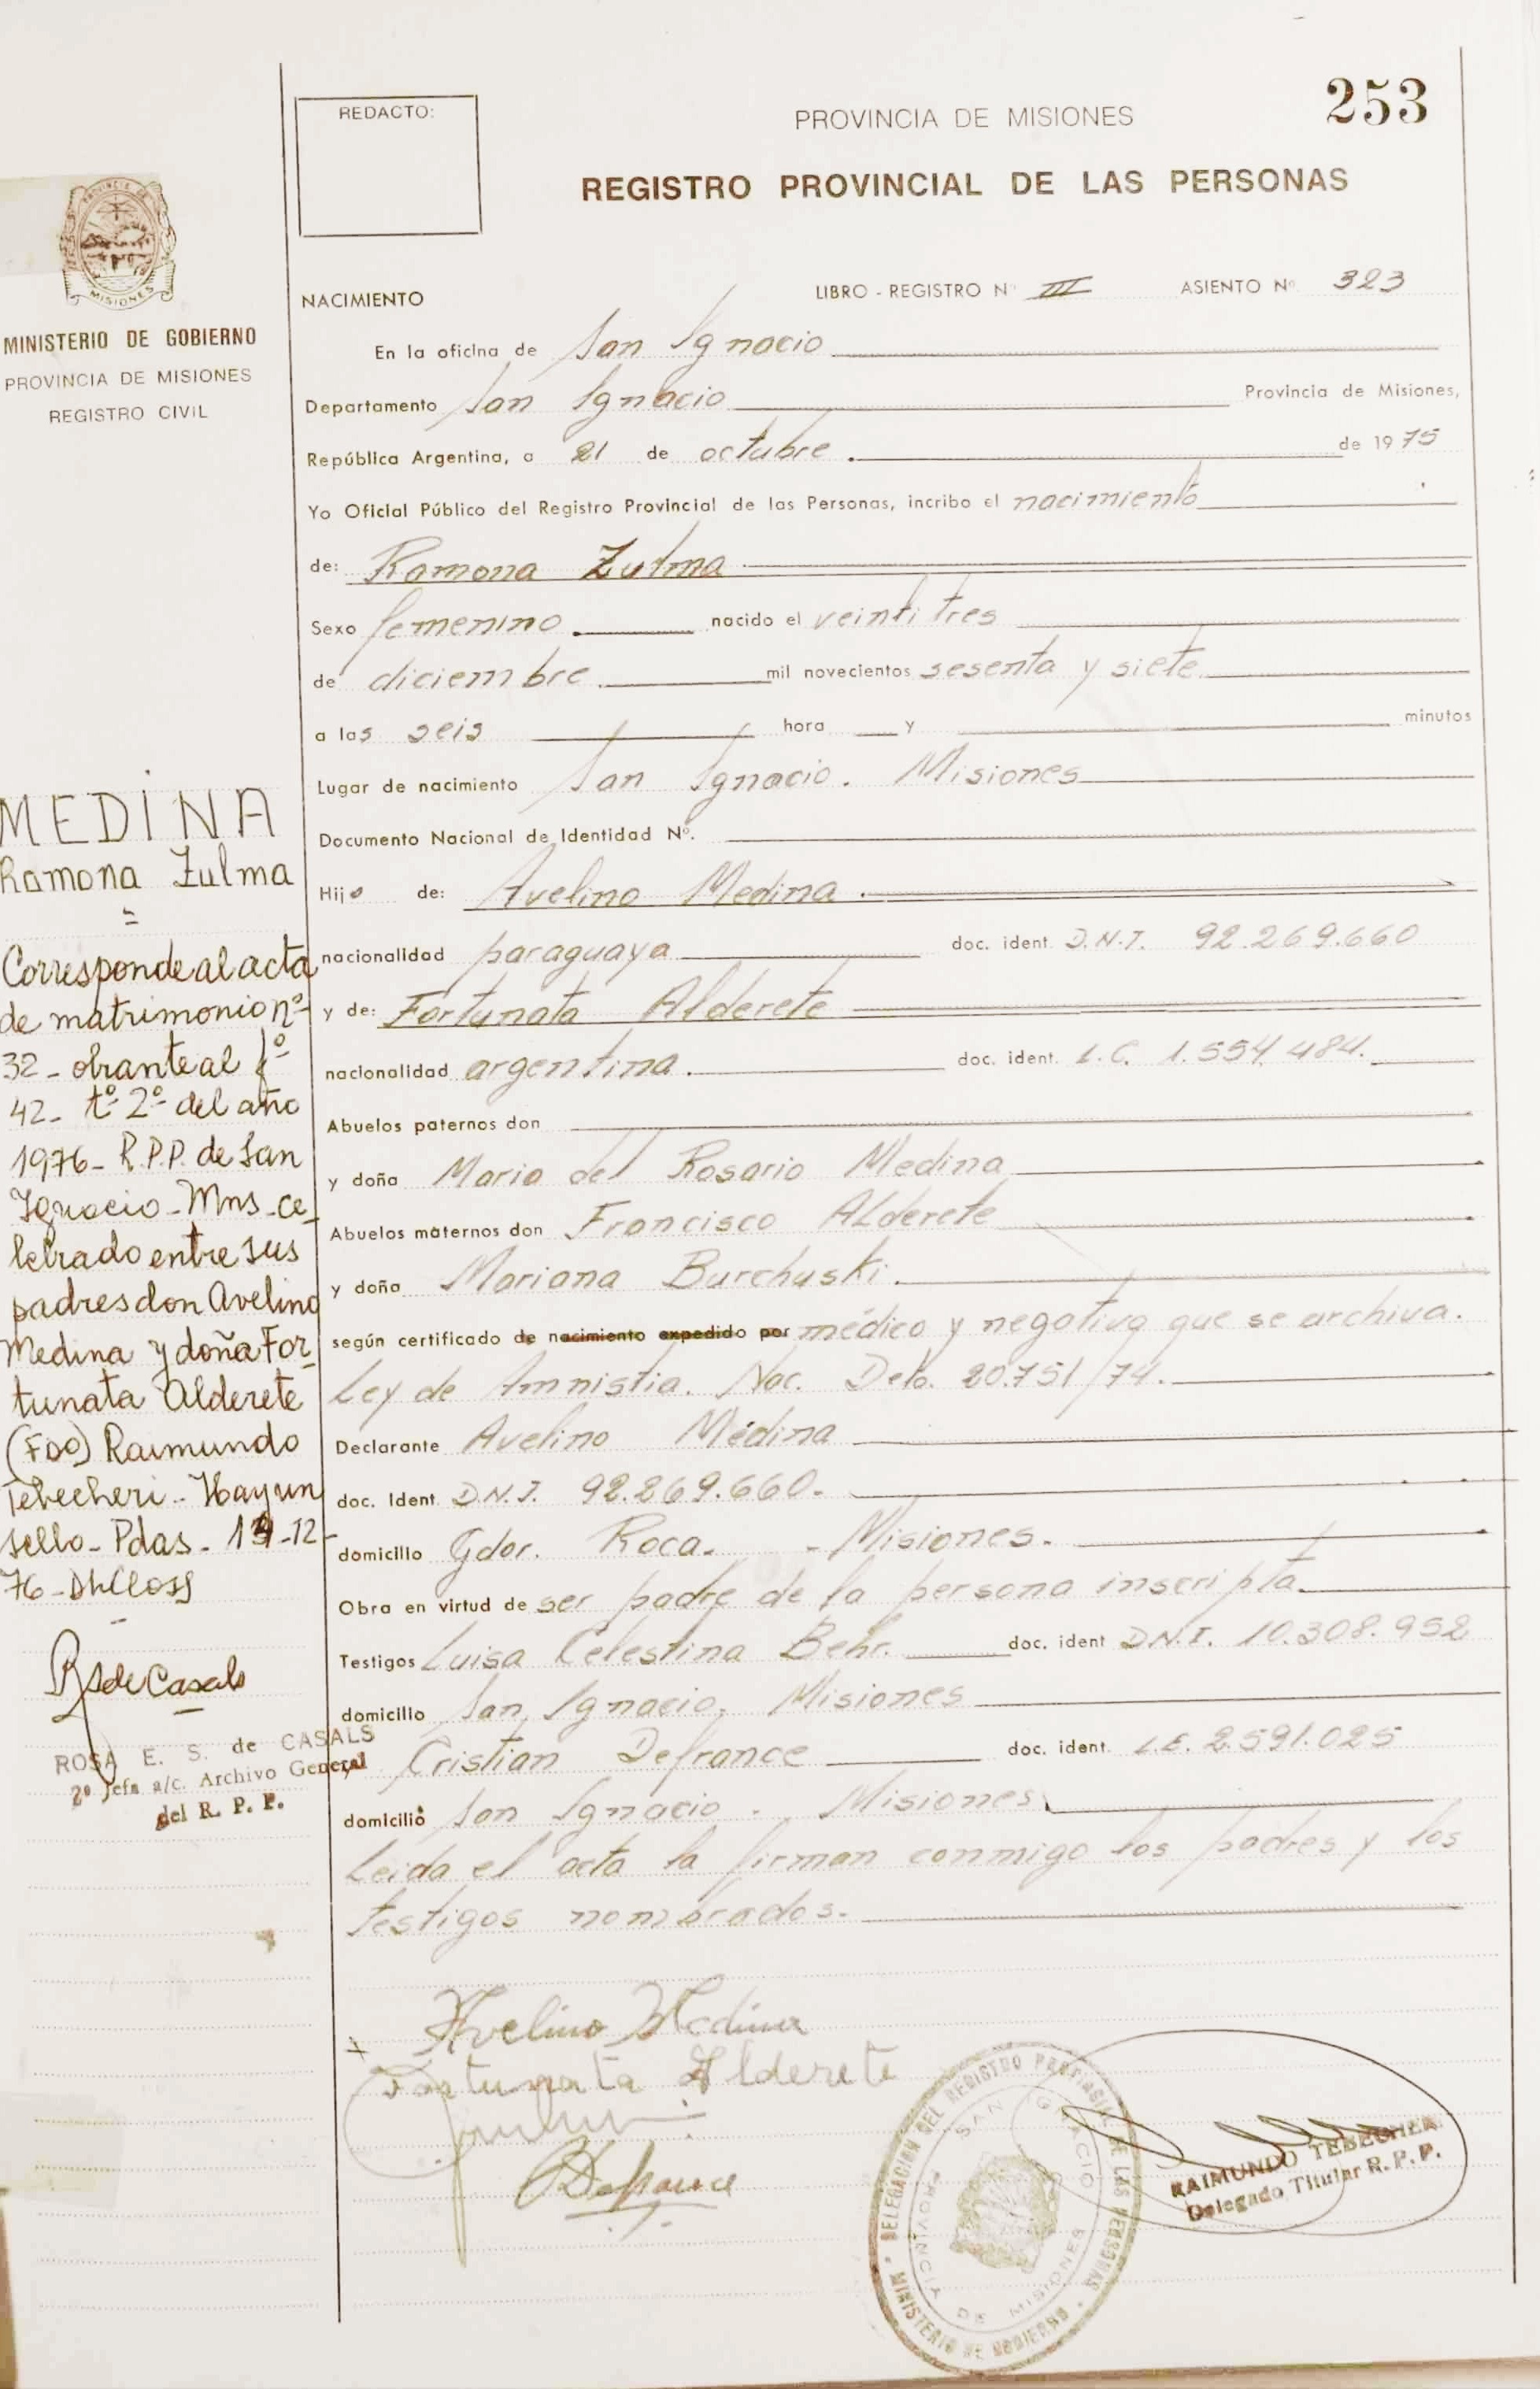 253
REDACTO:
PROVINCIA DE MISIONES
REGISTRO PROVINCIAL DE LAS PERSONAS
MISIONES
MINISTERIO DE GOBIERNO
PROVINCIA DE MISIONES
REGISTRO CIVIL
NACIMIENTO
LIBRO - REGISTRO Nº III ASIENTO Nº 323
En la oficina de San Ignacio
Departamento San Ignacio Provincia de Misiones,
República Argentina, a 21 de octubre. de 1975
Yo Oficial Público del Registro Provincial de las Personas, incribo el nacimiento
de: Ramona Zulma
Sexo femenino. nacido el veintitres
de diciembre mil novecientos sesenta y siete
a las seis hora y minutos
Lugar de nacimiento San Ignacio. Misiones
Documento Nacional de Identidad Nº.
Hija de: Avelino Medina.
nacionalidad paraguaya doc. ident. D.N.I. 92.269.660
y de: Fortunata Alderete
nacionalidad argentina. doc. ident. L.C. 1.554.484.
Abuelos paternos don
y doña Maria del Rosario Medina
Abuelos maternos don Francisco Alderete
y doña Mariana Burchuski.
según certificado de nacimiento expedido por médico y negativa que se archiva.
Ley de Amnistia. Nac. Deto. 20.751/74.
Declarante Avelino Medina
doc. Ident. D.N.I. 92.269.660.
domicilio Gdor. Roca. - Misiones.
Obra en virtud de ser padre de la persona inscripta.
Testigos Luisa Celestina Behr. doc. ident D.N.I. 10.308.952
domicilio San Ignacio. Misiones
y Cristian Defrance doc. ident. L.E. 2.591.025
domicilio San Ignacio. Misiones
Leida el acta la firman conmigo los padres y los
testigos nombrados.
MEDINA
Ramona Zulma
=
Corresponde al acta
de matrimonio nº
32 - obrante al fº
42 - tº 2º del año
1976 - R.P.P. de San
Ignacio - Mns - ce_
lebrado entre sus
padres don Avelino
Medina y doña For_
tunata Alderete
(Fdo) Raimundo
Tebecheri - Hay un
sello - Pdas -
76 -
RSdeCasals
ROSA E. S. de CASALS
2º Jefa a/c. Archivo General
del R. P. P.
Avelino Medina
Fortunata Alderete
CDefrance
DELEGACION DEL REGISTRO PROVINCIAL DE LAS PERSONAS
MINISTERIO DE GOBIERNO
SAN IGNACIO
PROVINCIA DE MISIONES
RAIMUNDO TEBECHER
Delegado Titular R. P. P.